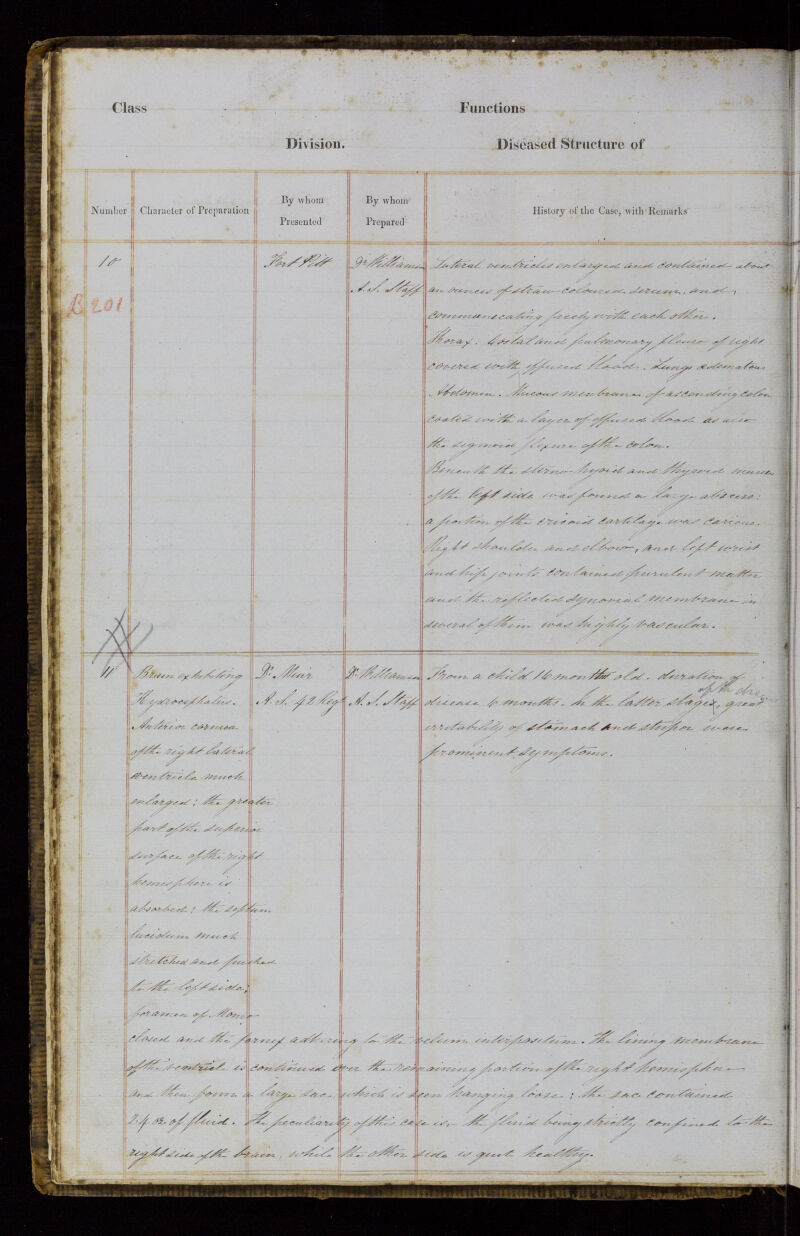 Class Functions
Division. Diseased Structure of
Number Character of Preparation By whom Presented By whom Prepared History of the Case, with Remarks
10 Fort Pitt Dr Williamson
A. S. Staff
B 201
Lateral ventricles enlarged and contained about
an ounces of straw coloured serum, and,
communicating freely with each other.
Thorax. Costal and pulmonary pleura of right
covered with effused blood. Lungs œdematous
Abdomen. Mucous membrane of ascending colon
coated with a layer of effused blood as also
the sigmoid flexure of the colon.
Beneath the sterno hyoid and thyroid muscles
of the left side was found a large abscess:
a portion of the cricoid cartilage was carious.
Right shoulder and elbow, and left wrist
and hip joints contained purulent matter
and the reflected synovial membrane in
several of them was highly vascular.
11 Brain exhibiting
Hydrocephalus.
Anterior cornua
of the right lateral
ventricle much
enlarged: the greater
part of the superior
surface of the right
hemisphere is
absorbed: the septum
lucidum much
stretched and pushed
to the left side;
foramen of Monro
Dr Muir
A. S. 42 Regt
Dr Williamson
A. S. Staff
From a child 16 months old. duration of
disease 6 months. In the latter stages, of the great
irritability of stomach and stupor were
prominent symptoms.
closed and the fornix adhering to the velum interpositum. The lining membrane
of the ventricle is continued over the remaining portion of the right hemisphere
and then forms a large sac which is seen hanging loose; the sac contained
24 oz of fluid. The peculiarity of this case is, the fluid being strictly confined to the
right side of the brain, while the other side is quite healthy.